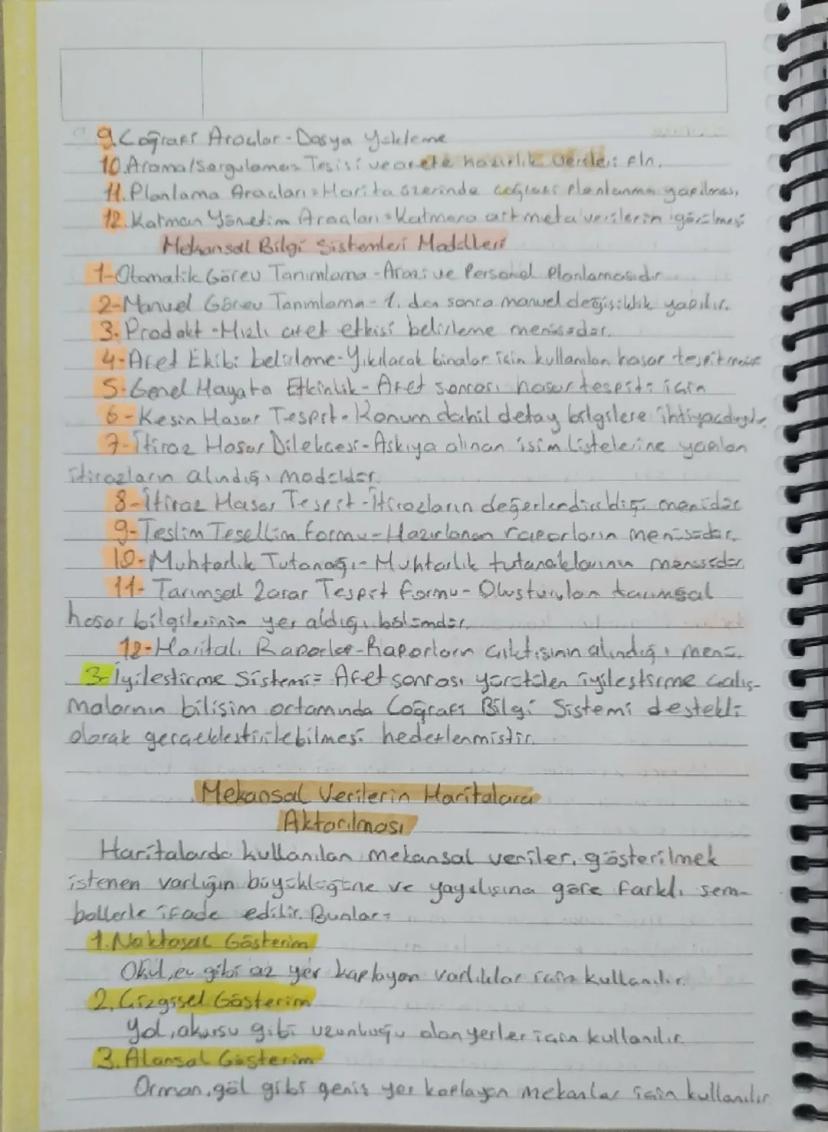 9.Coğrafi Araçlar-Dosya Yükleme
10.Arama/Sorgulama= Tesisi ve afete hazırlık verileri Pln.
11.Planlama Araçları=Harita üzerinde coğrafi planlanma yapılması,
12.Katman Yönetim Araçları=Katmana ait meta verilerin görülmesi
Mekansal Bilgi Sistemleri Modülleri
1-Otomatik Görev Tanımlama-Arazi ve Personel Planlamasıdır
2-Manuel Görev Tanımlama-1. den sonra manuel değişiklik yapılır.
3.Produkt-Hızlı afet etkisi belirleme menüsüdür.
4-Afet Etkibi belirleme-Yıkılacak binalar için kullanılan hasar tespit
5-Genel Hayata Etkinlik-Afet sonrası hasar tespiti için
6-Kesin Hasar Tespit-Konum dahil detay bilgilere ihtiyaç
7-İtiraz Hasar Dilekçesi-Askıya alınan isim listelerine yapılan
itirazların alındığı modüldür.
8-İtiraz Hasar Tespit-İtirazların değerlendirildiği menüdür
9-Teslim Tesellim Formu-Hazırlanan raporların menüsüdür.
10-Muhtarlık Tutanağı-Muhtarlık tutanaklarının menüsüdür.
11-Tarımsal Zarar Tespit formu-Oluşturulan tarımsal
hasar bilgilerinin yer aldığı bölümdür.
12-Haritalı Raporlar-Raporların çıktısının alındığı menü.
3-İyileştirme Sistemi= Afet sonrası yürütülen iyileştirme çalış-
malarının bilişim ortamında Coğrafi Bilgi Sistemi destekli
olarak gerçekleştirilebilmesi hedeflenmiştir.
Mekansal Verilerin Haritalara
Aktarılması
Haritalarda kullanılan mekansal veriler, gösterilmek
istenen varlığın büyüklüğüne ve yayılışına göre farklı sem-
bollerle ifade edilir. Bunlar=
1.Noktasal Gösterim
Okul,ev gibi az yer kaplayan varlıklar için kullanılır.
2.Çizgisel Gösterim
Yol,akarsu gibi uzunluğu olan yerler için kullanılır
3.Alansal Gösterim
Orman,göl gibi geniş yer kaplayan mekanlar için kullanılır